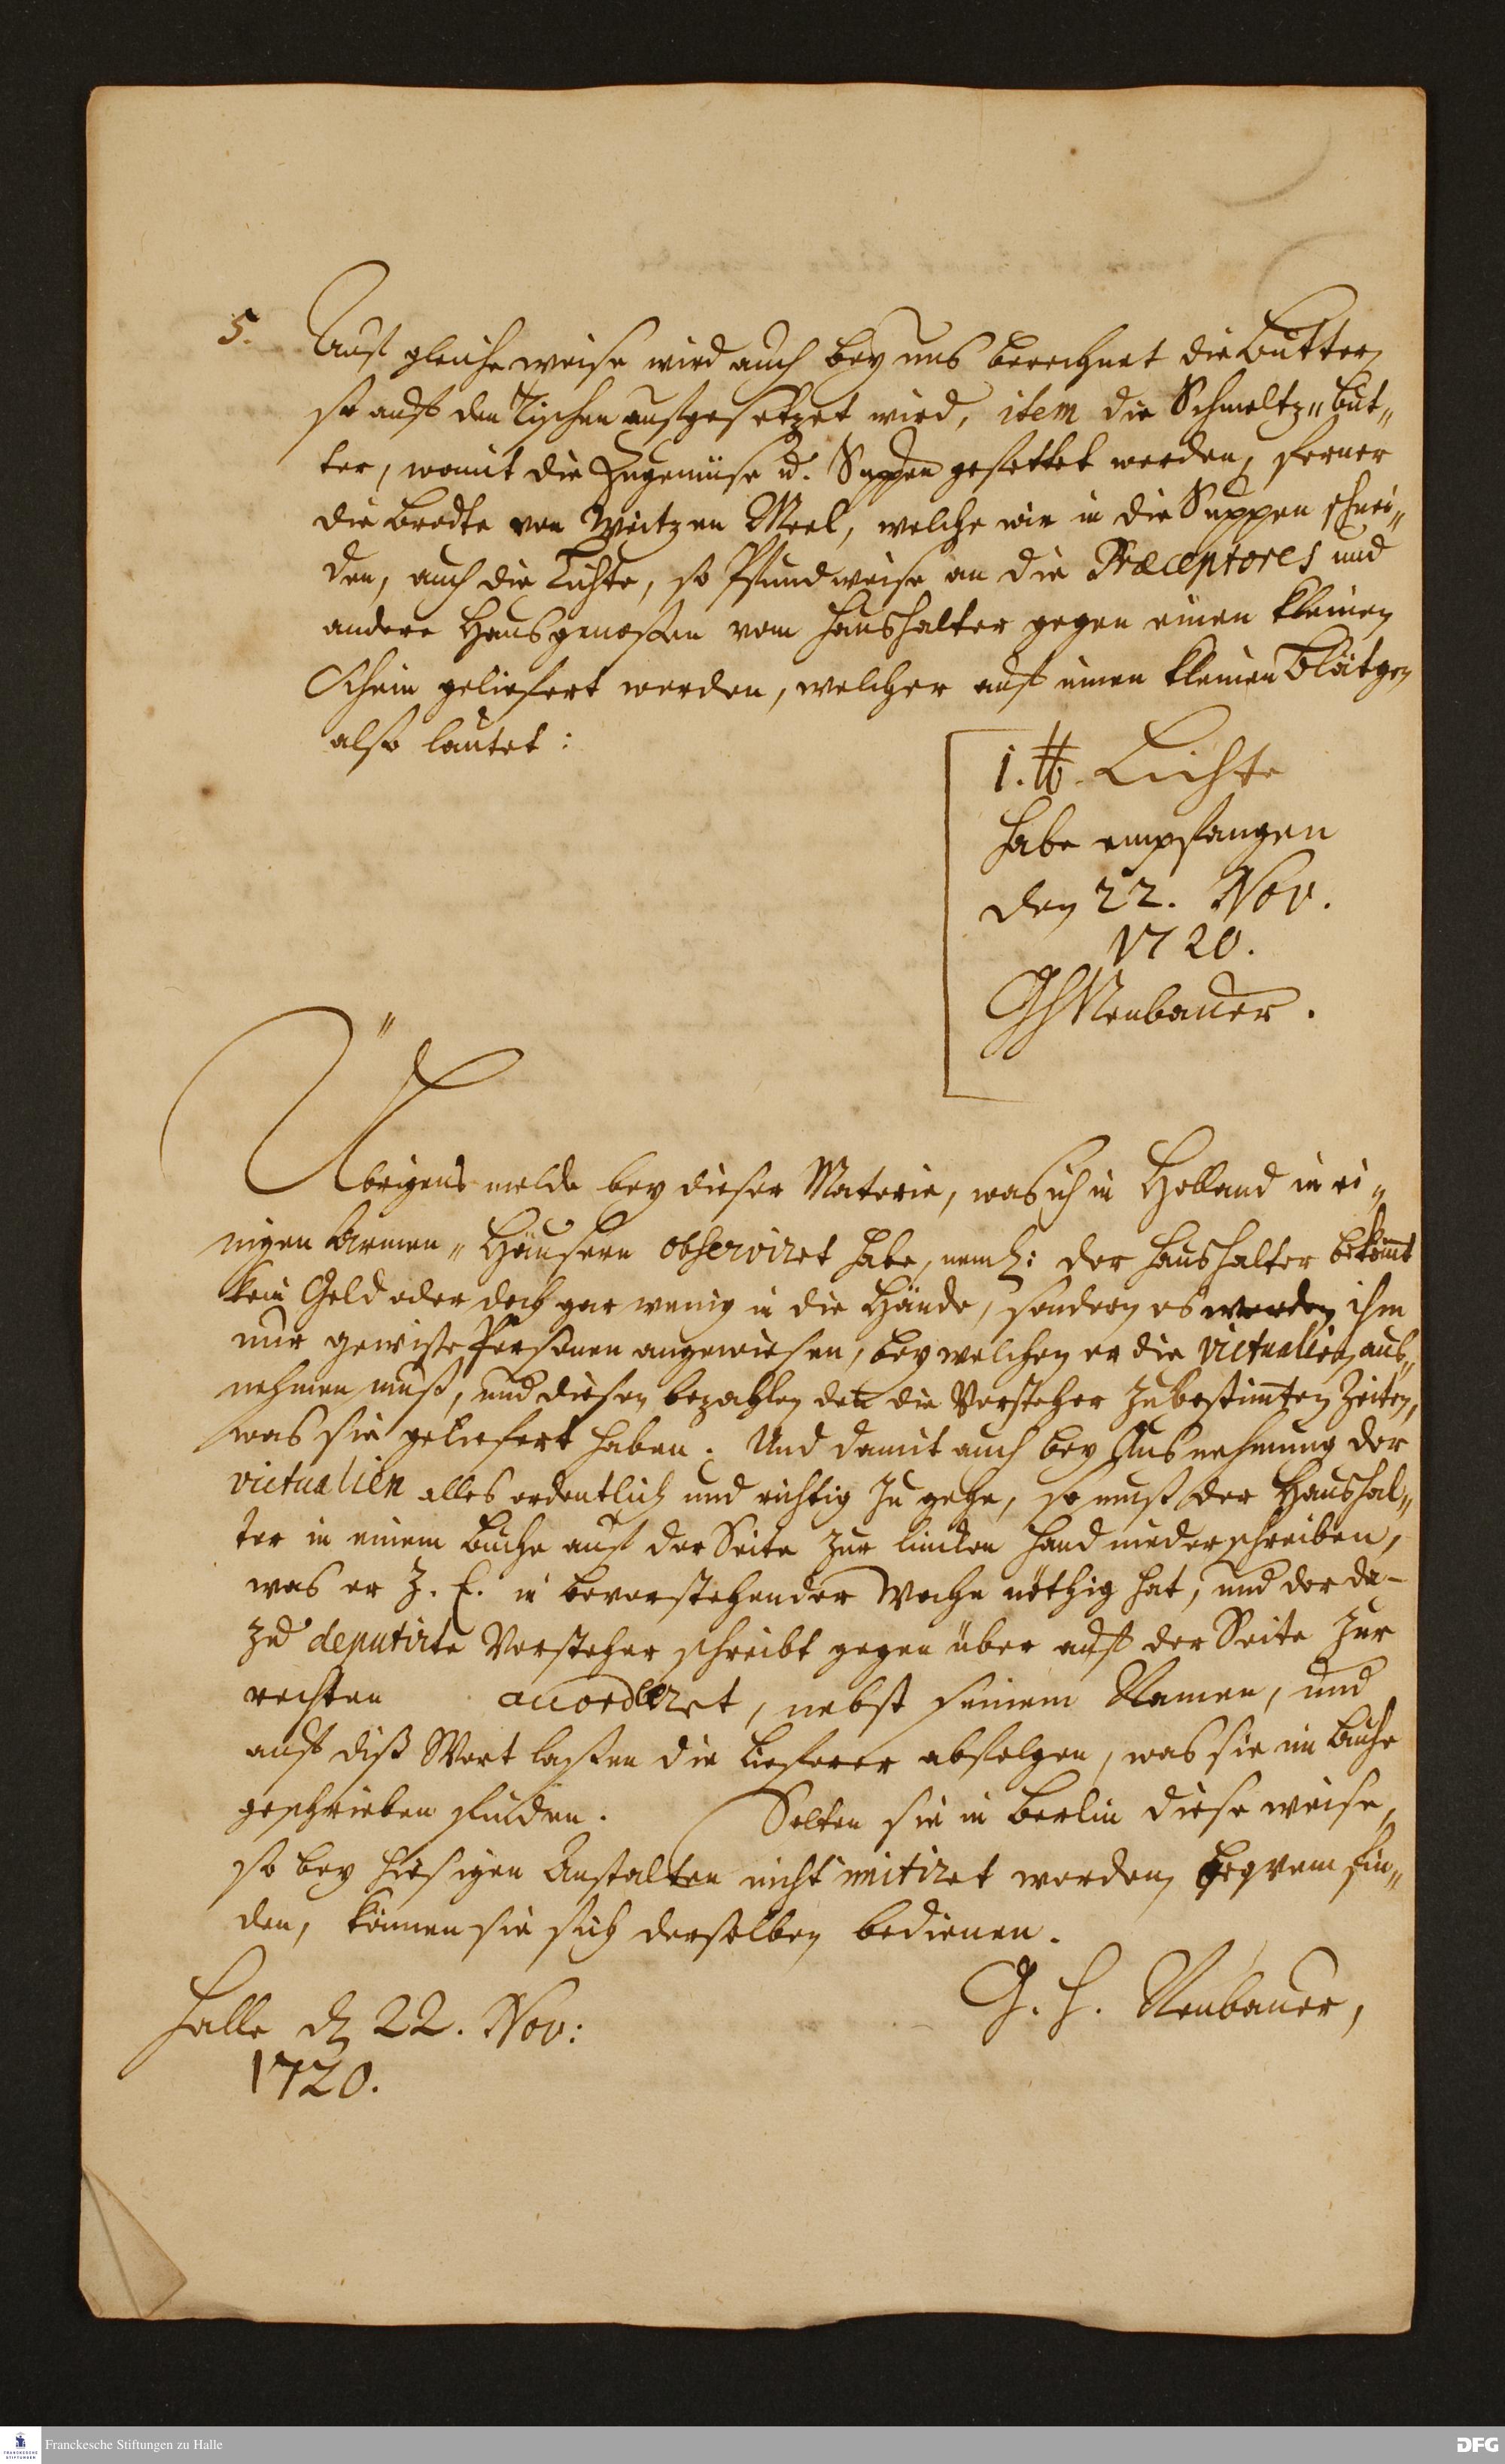 5. Auf gleiche weise wird auch bey uns berechnet die Butter,
so auf den Tischen aufgesetzet wird, item die Schmeltz-But-
ter, womit die Zugemüse u. Suppen gefettet werden, ferner
die Brodte von Weitzen Meel, welche wir in die Suppen schnei-
den, auch die Lichte, so Pfundweise an die Præceptores und
andere Hausgenoßen vom Haushalter gegen einen kleinen
Schein geliefert werden, welcher auf einen kleinen Blätgen
also lautet:
1. ℔ Lichte
habe empfangen
den 22. Nov.
1720.
GHNeubauer.
Übrigens melde bey dieser Materie, was ich in Holland in ei-
nigen Armen-Häusern observiret habe, neml: der Haushalter bekomt
kein Geld oder doch gar wenig in die Hände, sondern es werden ihm
nur gewiße Personen angewiesen, bey welchen er die victualien aus-
nehmen muß, und diesen bezahlen den die Vorsteher zu bestimten Zeiten,
was sie geliefert haben. Und damit auch bey Ausnehmung der
victualien alles ordentlich und richtig zu gehe, so muß der Haushal-
ter in einem Buche auf der Seite zur lincken Hand niederschreiben,
was er z. E. in bevorstehender Woche nöthig hat, und der da-
zu deputirte Vorsteher schreibt gegen über auf der Seite zur
rechten accordiret, nebst seinem Namen, und
auf diß Wort laßen die Lieferer abfolgen, was sie im Buche
geschrieben finden. Solten sie in Berlin diese weise,
so bey hiesigen Anstalten nicht imitiret werden, beqvem fin-
den, können sie sich derselben bedienen.
G. H. Neubauer,
Halle d 22. Nov:
1720.
Franckesche Stiftungen zu Halle
FRANCKESCHE STIFTUNGEN
DFG